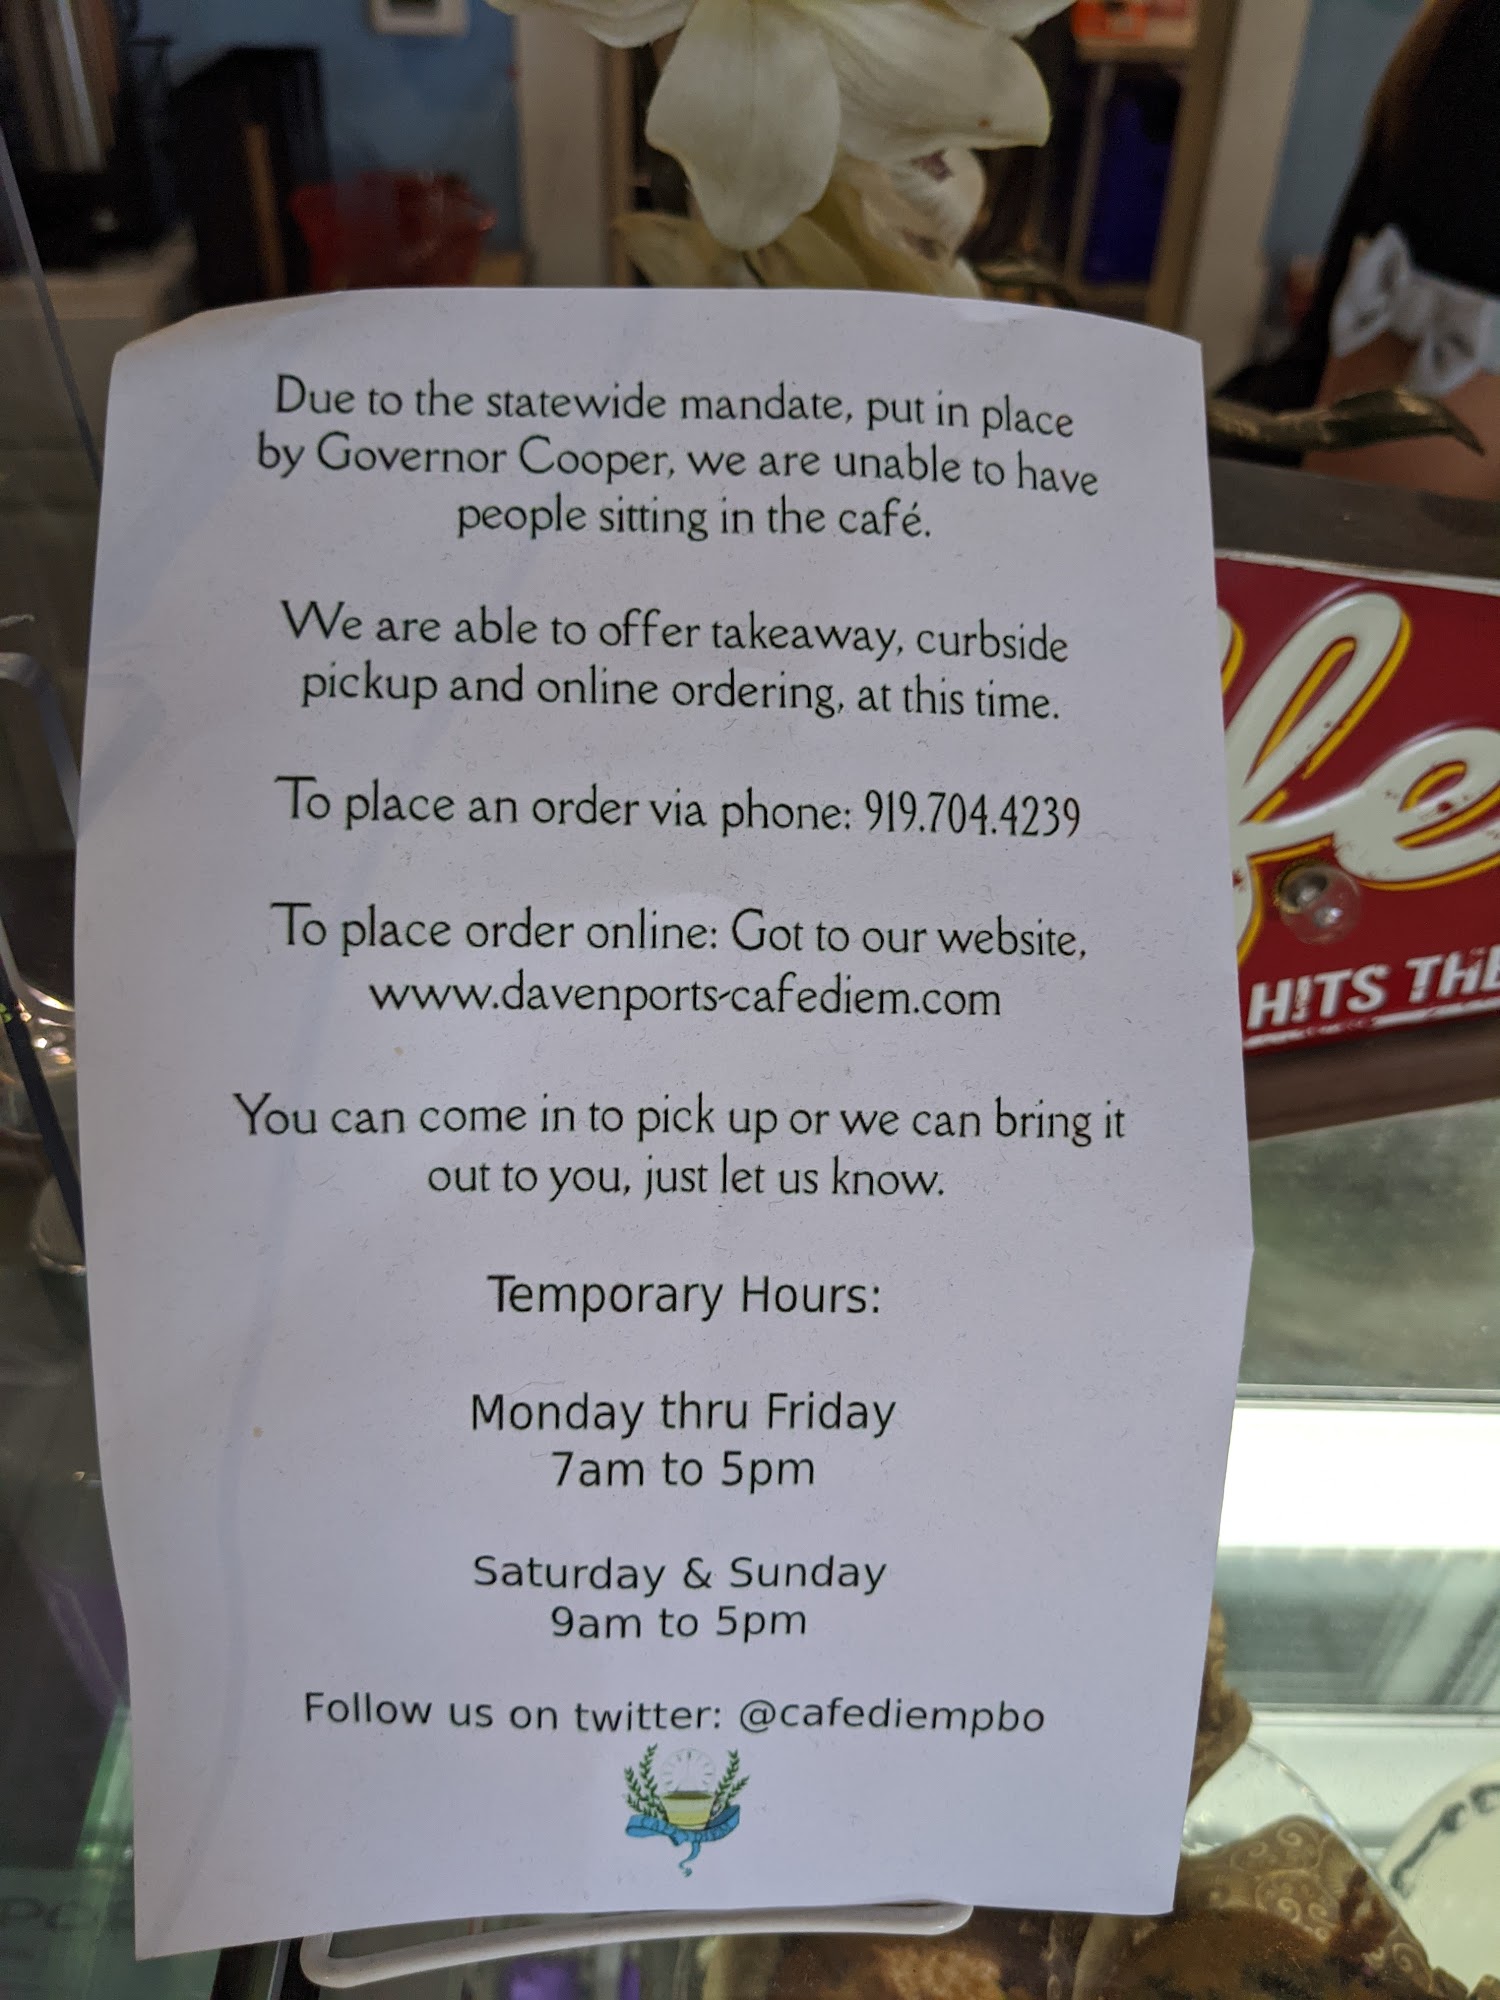 Due to the statewide mandate, put in place
by Governor Cooper, we are unable to have
people sitting in the café.
We are able to offer takeaway, curbside
pickup and online ordering, at this time.
To place an order via phone: 919.704.4239
To place order online: Got to our website,
www.davenports-cafediem.com
You can come in to pick up or we can bring it
out to you, just let us know.
Temporary Hours:
Monday thru Friday
7am to 5pm
Saturday & Sunday
9am to 5pm
Follow us on twitter: @cafediempbo
CAFE DIEM
HITS THE